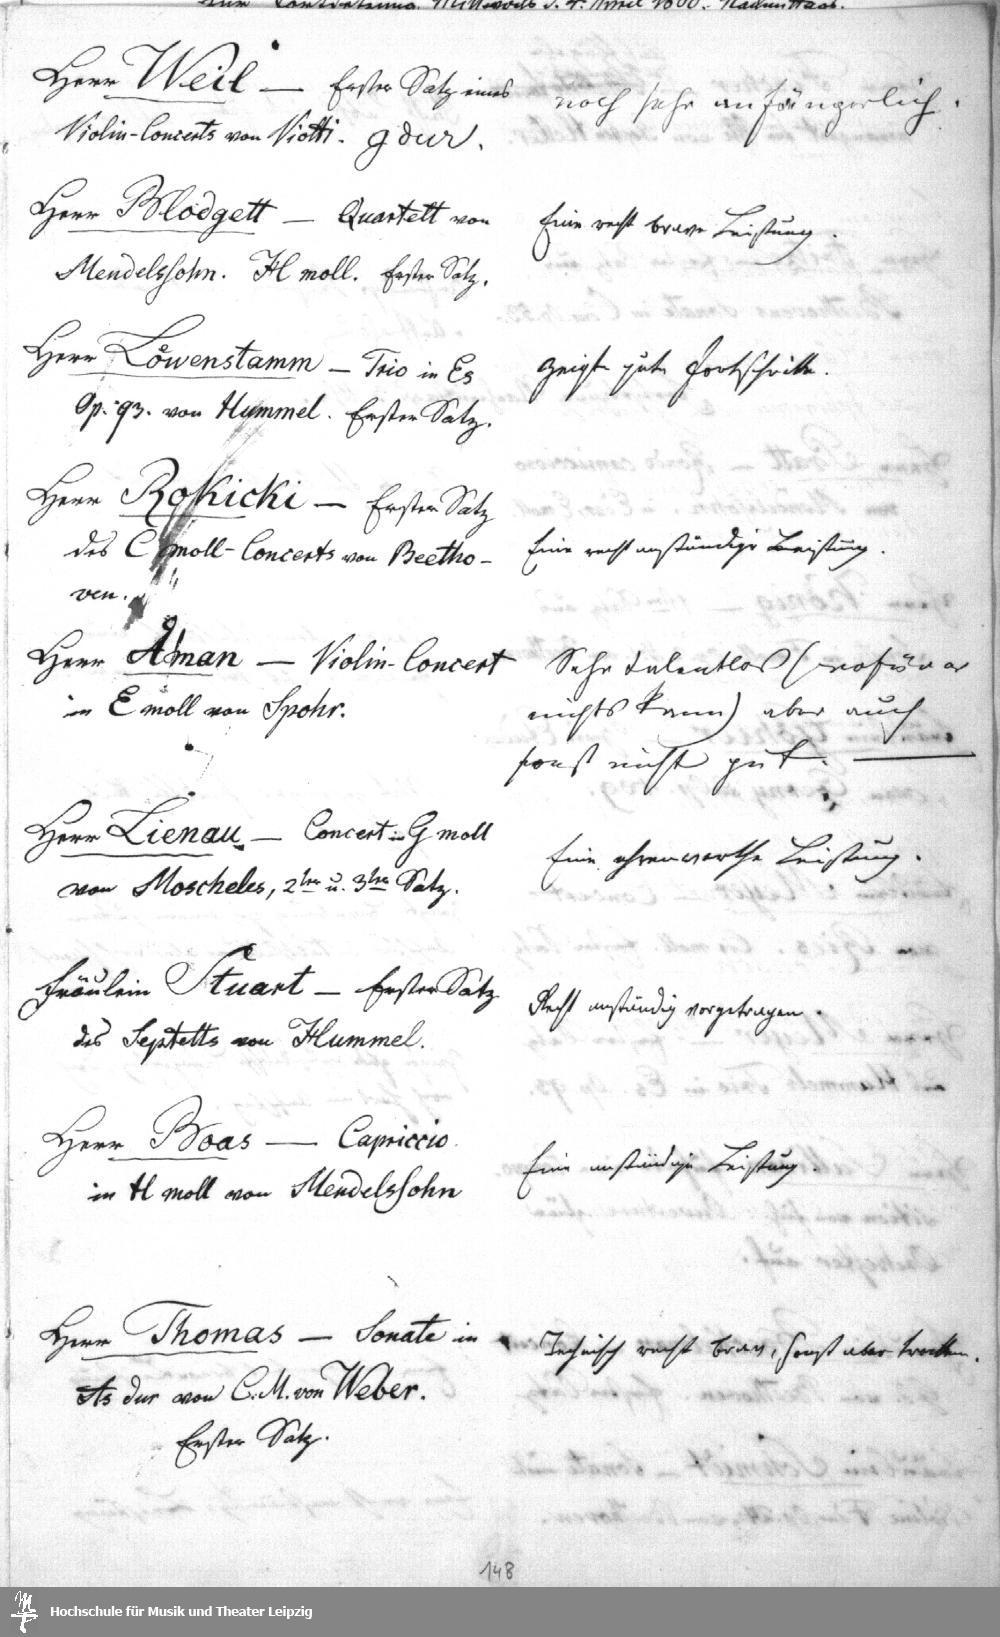 Mittwoch d. 4. April 1860. Nachmittags.
Herr Weil — Erster Satz eines
Violin-Concerts von Viotti. g dur.
noch sehr anfängerlich.
Herr Blodgett — Quartett von
Mendelssohn. H moll. Erster Satz.
Eine recht brave Leistung.
Herr Löwenstamm — Trio in Es
Op. 93. von Hummel. Erster Satz.
Zeigte gute Fortschritte.
Herr Rokicki — Erster Satz
des C moll-Concerts von Beetho-
ven.
Eine recht anständige Leistung.
Herr Aman — Violin-Concert
in E moll von Spohr.
Sehr talentlos (wofür er
nichts kann) aber auch
sonst nicht gut. —
Herr Lienau — Concert in G moll
von Moscheles, 2ter u. 3ter Satz.
Eine ehrenwerthe Leistung.
Fräulein Stuart — Erster Satz
des Septetts von Hummel.
Recht anständig vorgetragen.
Herr Boas — Capriccio
in H moll von Mendelssohn
Eine anständige Leistung.
Herr Thomas — Sonate in
As dur von C. M. von Weber.
Erster Satz.
Technisch recht brav, sonst aber trocken.
148
Hochschule für Musik und Theater Leipzig